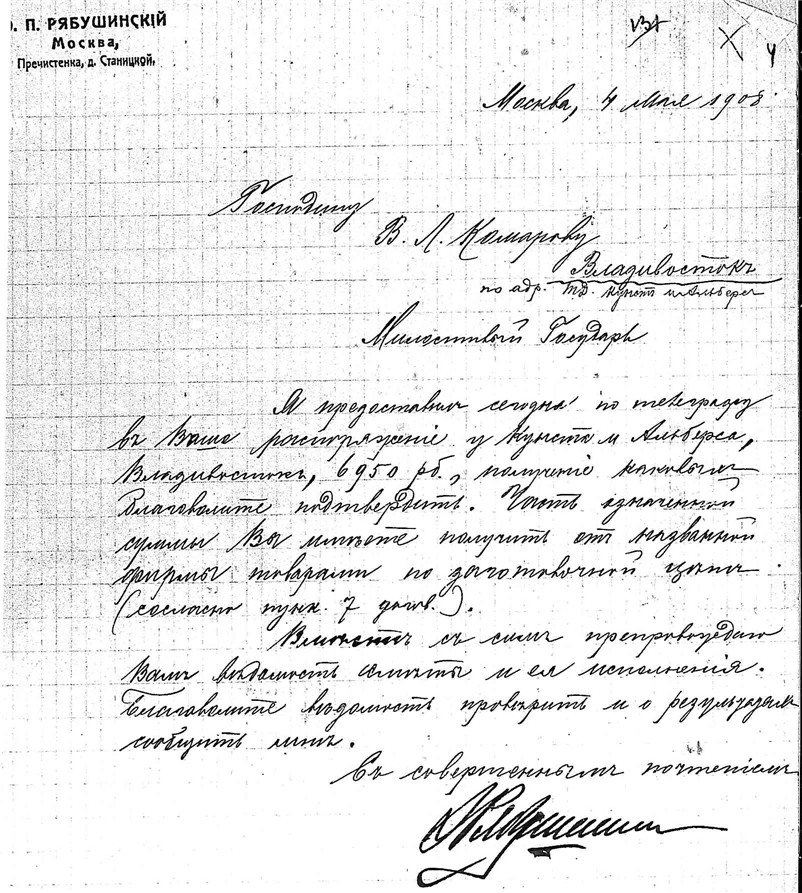 . П. РЯБУШИНСКІЙ
Москва,
Пречистенка, д. Станицкой.
Москва, 4 мая 1908.
Господину
В. Л. Комарову
Владивостокъ
по адр. Т.Д. Кунстъ и Альберсъ
Милостивый Государь
Я предоставилъ сегодня по телеграфу
въ Ваше распоряженіе у Кунста и Альберса,
Владивостокъ, 6950 рб., полученіе каковыхъ
благоволите подтвердить. Часть означенной
суммы Вы имѣете получить отъ названной
фирмы товарами по заготовочной цѣнѣ
(согласно пунк. 7 догов.).
Вмѣстѣ съ симъ препровождаю
Вамъ вѣдомость смѣты и ея исполненія.
Благоволите вѣдомость провѣрить и о результатѣ
сообщить мнѣ.
Съ совершеннымъ почтеніемъ